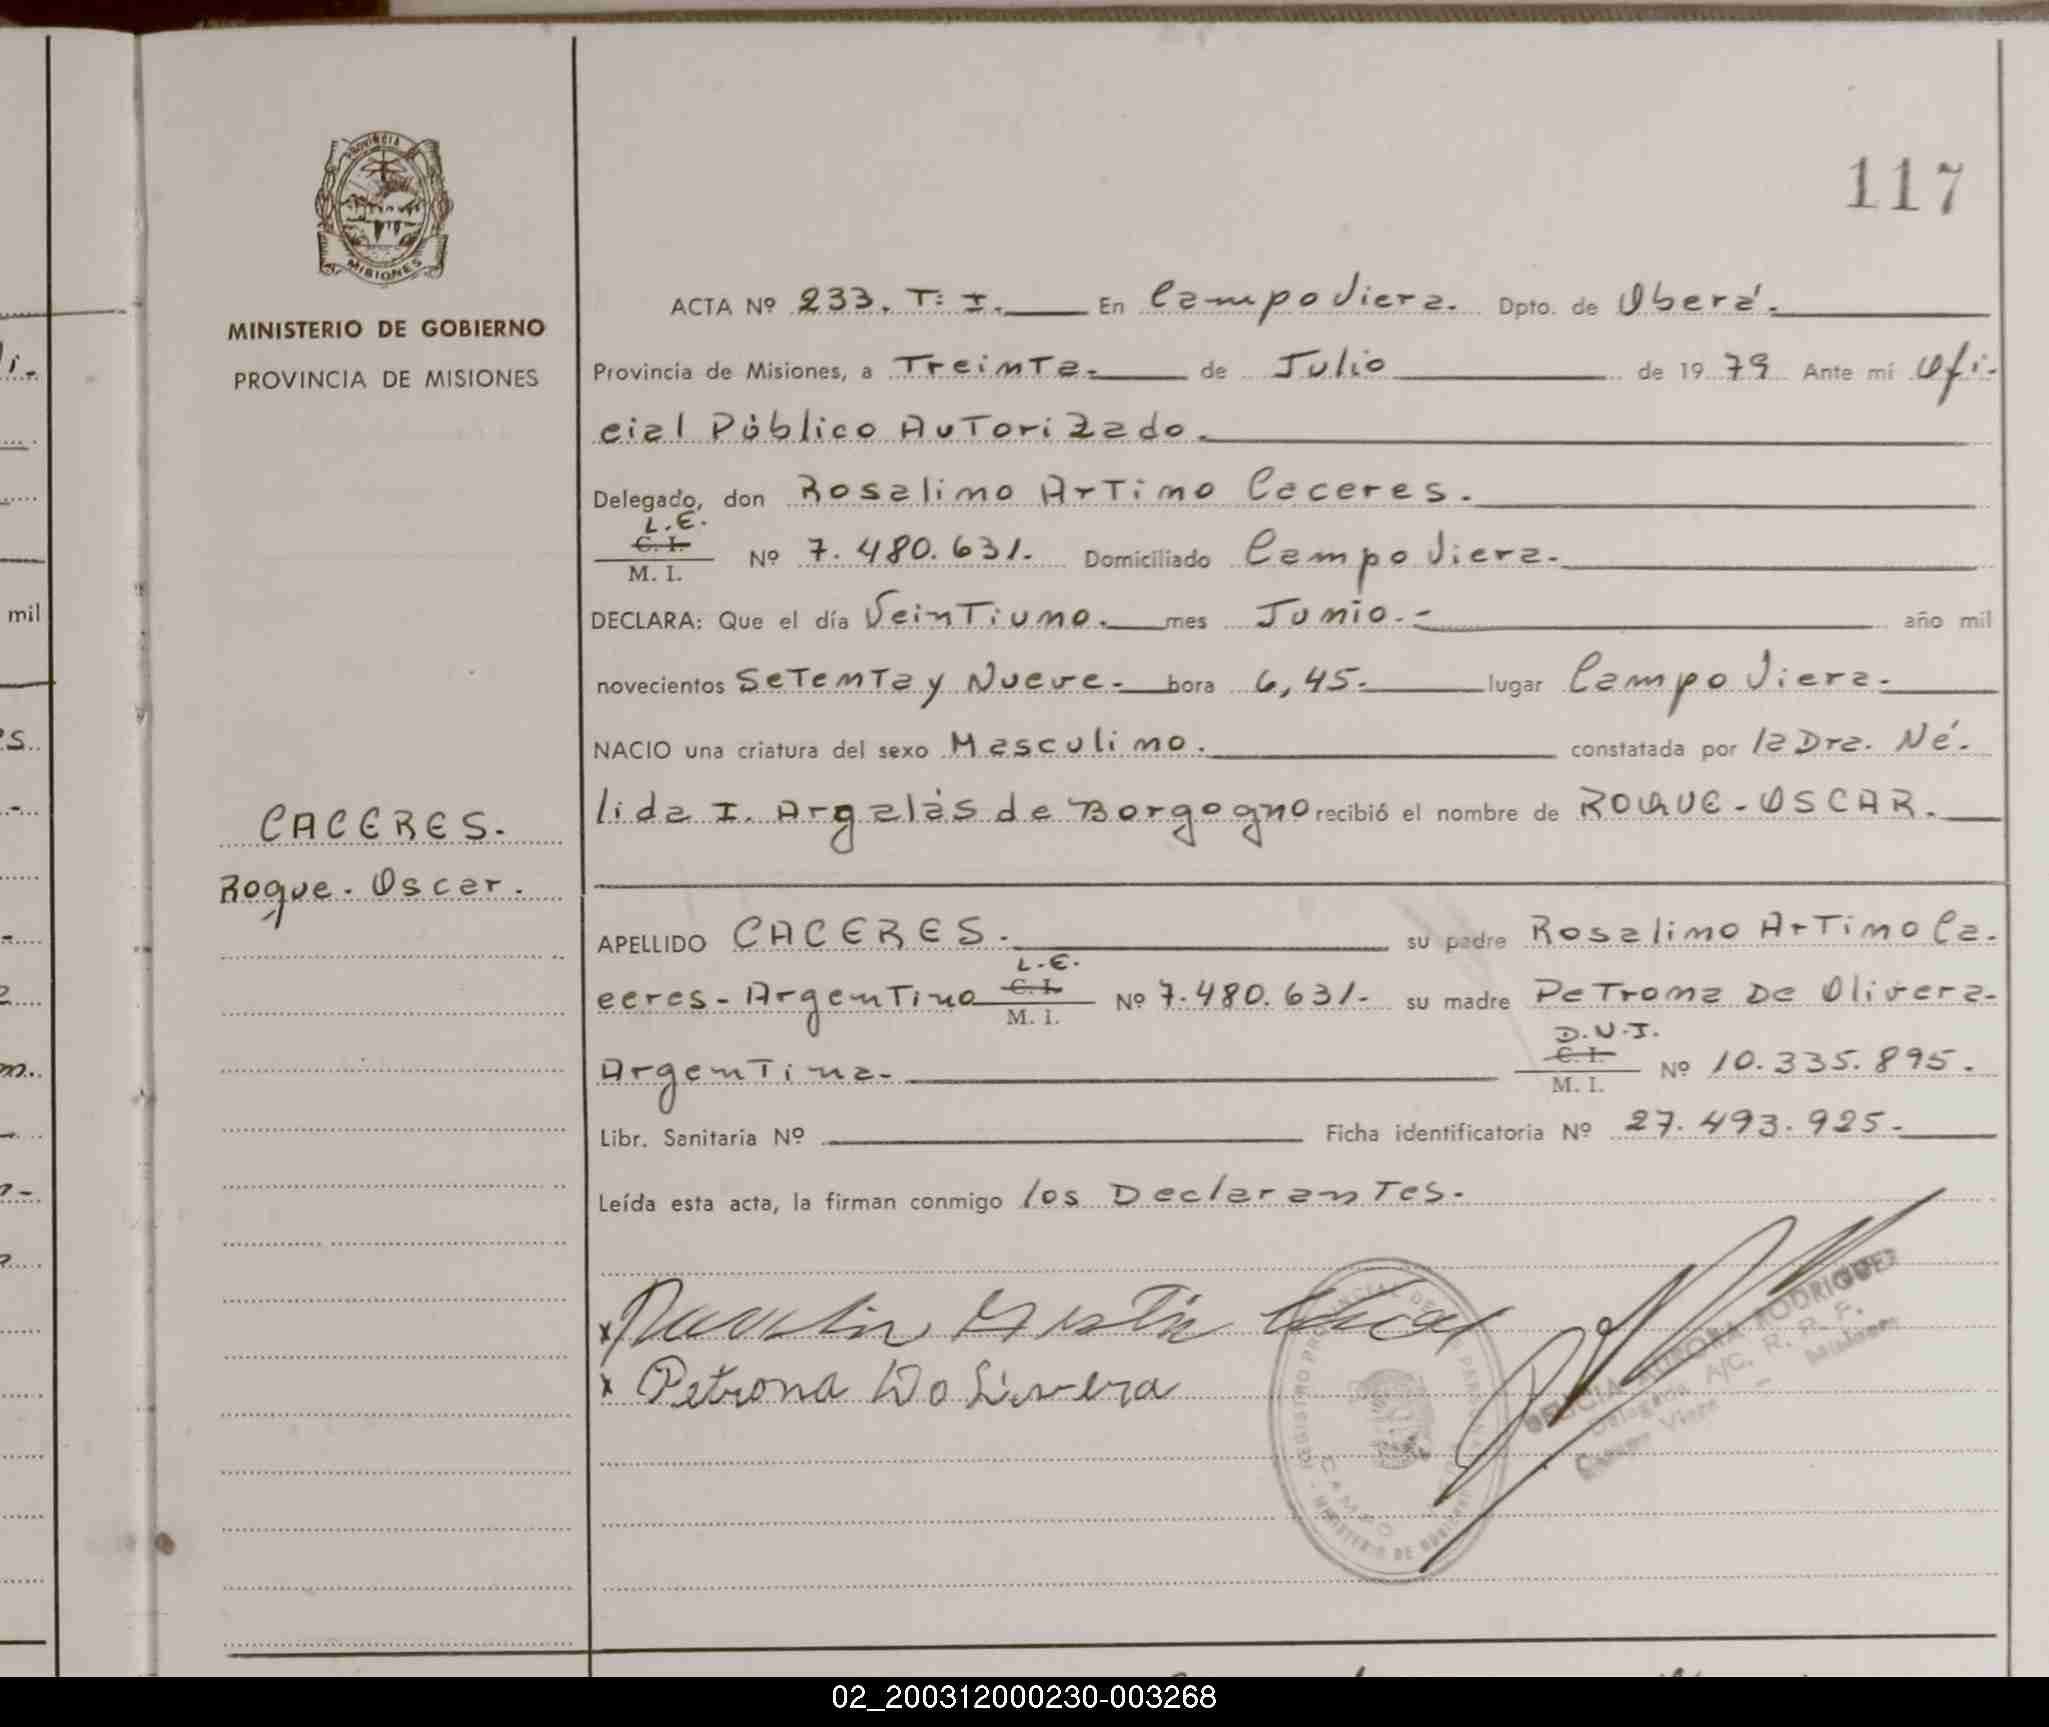 117
PROVINCIA
MISIONES
MINISTERIO DE GOBIERNO
PROVINCIA DE MISIONES
CACERES.
Roque. Oscar.
ACTA Nº 233. T: I. En Campo Viera. Dpto. de Oberá.
Provincia de Misiones, a Treinta. de Julio de 19 79 Ante mí Ofi-
cial Público Autorizado.
Delegado, don Rosalino Artino Caceres.
L.E.
C. I.
M. I.
Nº 7.480.631. Domiciliado Campo Viera.
DECLARA: Que el día Veintiuno. mes Junio.- año mil
novecientos Setenta y Nueve- hora 6,45- lugar Campo Viera.
NACIO una criatura del sexo Masculino. constatada por la Dra. Né-
lida I. Argalás de Borgogno recibió el nombre de ROQUE-OSCAR.
APELLIDO CACERES. su padre Rosalino Artino Ca-
ceres- Argentino
L.E.
C. I.
M. I.
Nº 7.480.631- su madre Petrona De Olivera-
Argentina-
D.N.I.
C. I.
M. I.
Nº 10.335.895.
Libr. Sanitaria Nº Ficha identificatoria Nº 27.493.925-
Leída esta acta, la firman conmigo los Declarantes.
x
x Petrona
AURORA RODRIGUEZ
Delegada A/C. R. P. P.
Campo Viera Misiones
MINISTERIO DE
CAMPO
mil
02_200312000230-003268